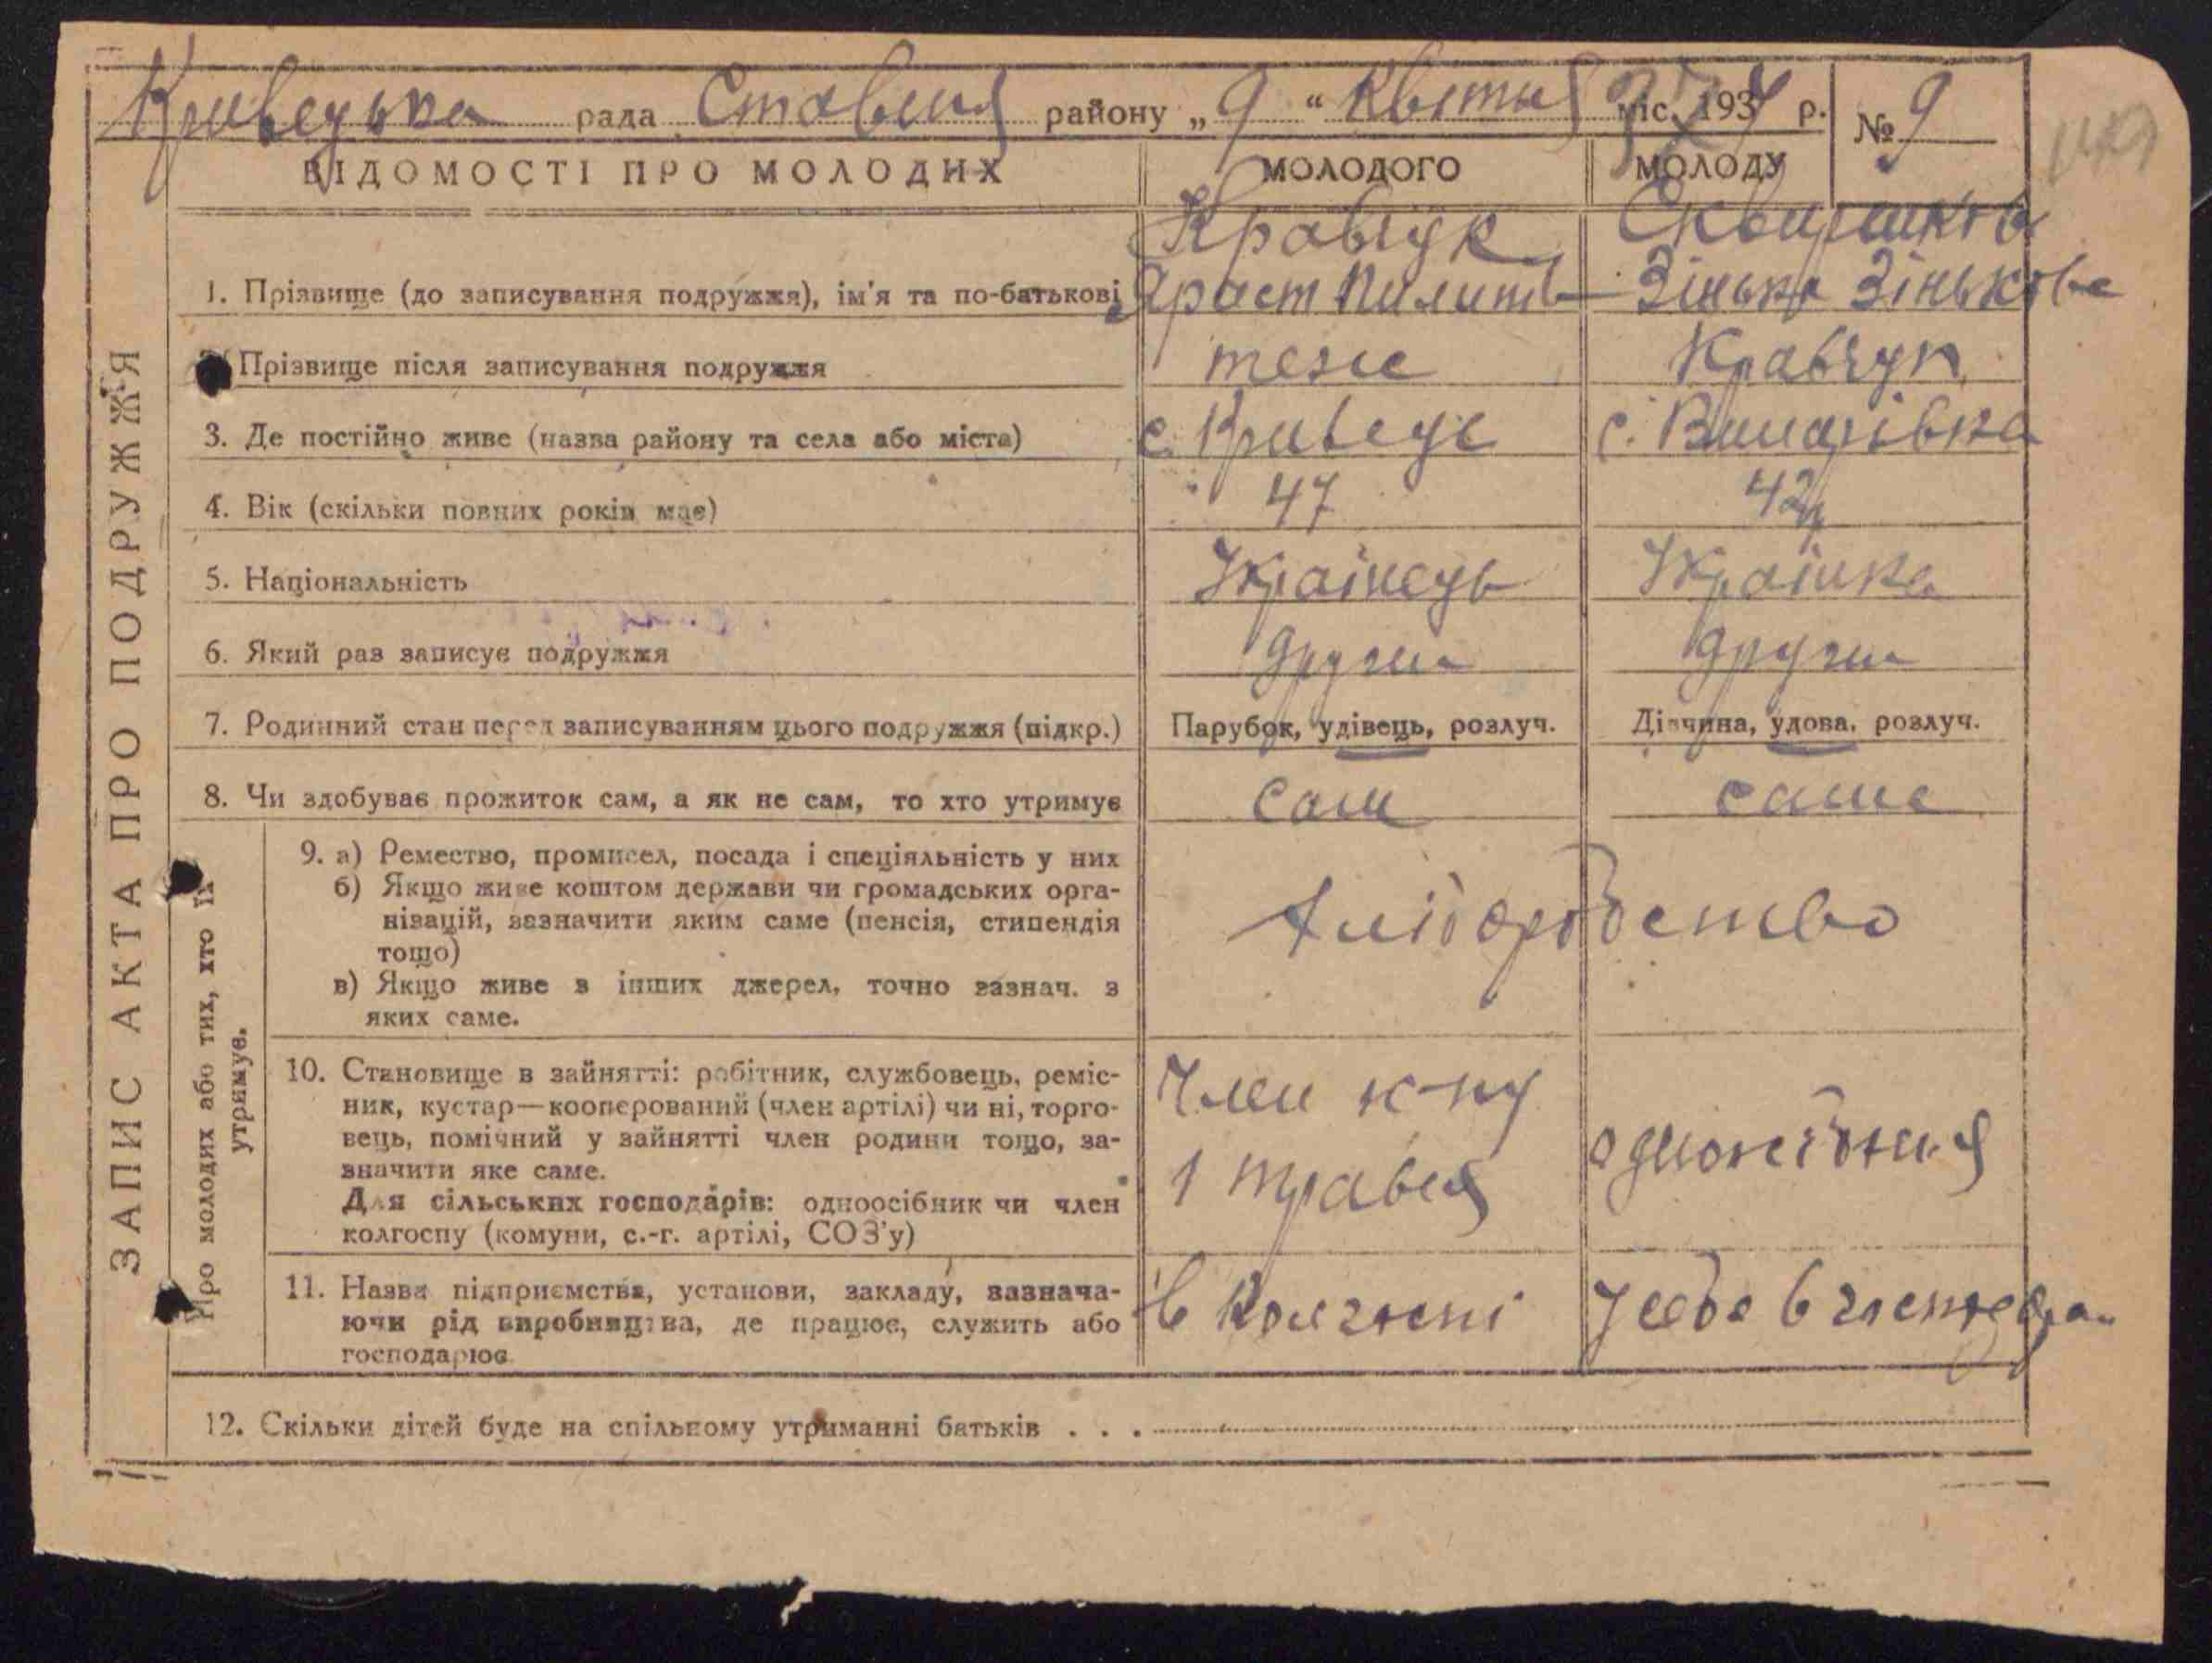 Кривецька рада Ставищ району „9“ Квітня міс. 1937 р. № 9
ВІДОМОСТІ ПРО МОЛОДИХ МОЛОДОГО МОЛОДУ
ЗАПИС АКТА ПРО ПОДРУЖЖЯ
Кравчук
1. Прізвище (до записування подружжя), ім'я та по-батькові Зінька Зінькова
2. Прізвище після записування подружжя теж Кравчук
3. Де постійно живе (назва району та села або міста) с. Кривець с.
4. Вік (скільки повних років має) 47 42
5. Національність Українець Українка
6. Який раз записує подружжя други други
7. Родинний стан перед записуванням цього подружжя (підкр.) Парубок, удівець, розлуч. Дівчина, удова, розлуч.
8. Чи здобуває прожиток сам, а як не сам, то хто утримує сам сама
Про молодих або тих, хто їх
утримує.
9. а) Ремество, промисел, посада і спеціяльність у них
б) Якщо живе коштом держави чи громадських орга-
нізацій, зазначити яким саме (пенсія, стипендія
тощо)
в) Якщо живе з інших джерел, точно зазнач. з
яких саме.
Хліборобство
10. Становище в зайнятті: робітник, службовець, реміс-
ник, кустар—кооперований (член артілі) чи ні, торго-
вець, помічний у зайнятті член родини тощо, за-
значити яке саме.
Для сільських господарів: одноосібник чи член
колгоспу (комуни, с.-г. артілі, СОЗ'у)
Член к-пу
1 травня
11. Назва підприємства, установи, закладу, зазнача-
ючи рід виробництва, де працює, служить або
господарює
в колгоспі
У себе в
12. Скільки дітей буде на спільному утриманні батьків . . .